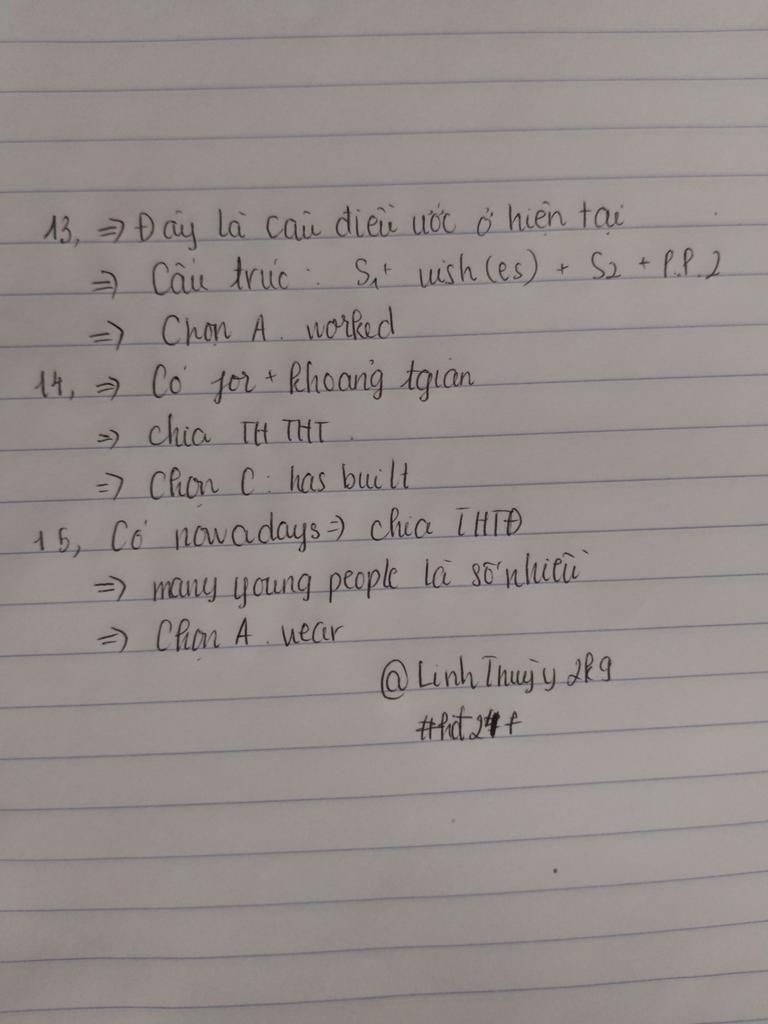 13, => Đây là câu điều ước ở hiện tại
=> Cấu trúc : S1 + wish(es) + S2 + P.P.2
=> Chọn A. worked
14, => Có for + khoảng tgian
=> chia TH THT
=> Chọn C : has built
15, Có nowadays => chia THTĐ
=> many young people là số nhiều
=> Chọn A. wear
@LinhThuỳy2k9